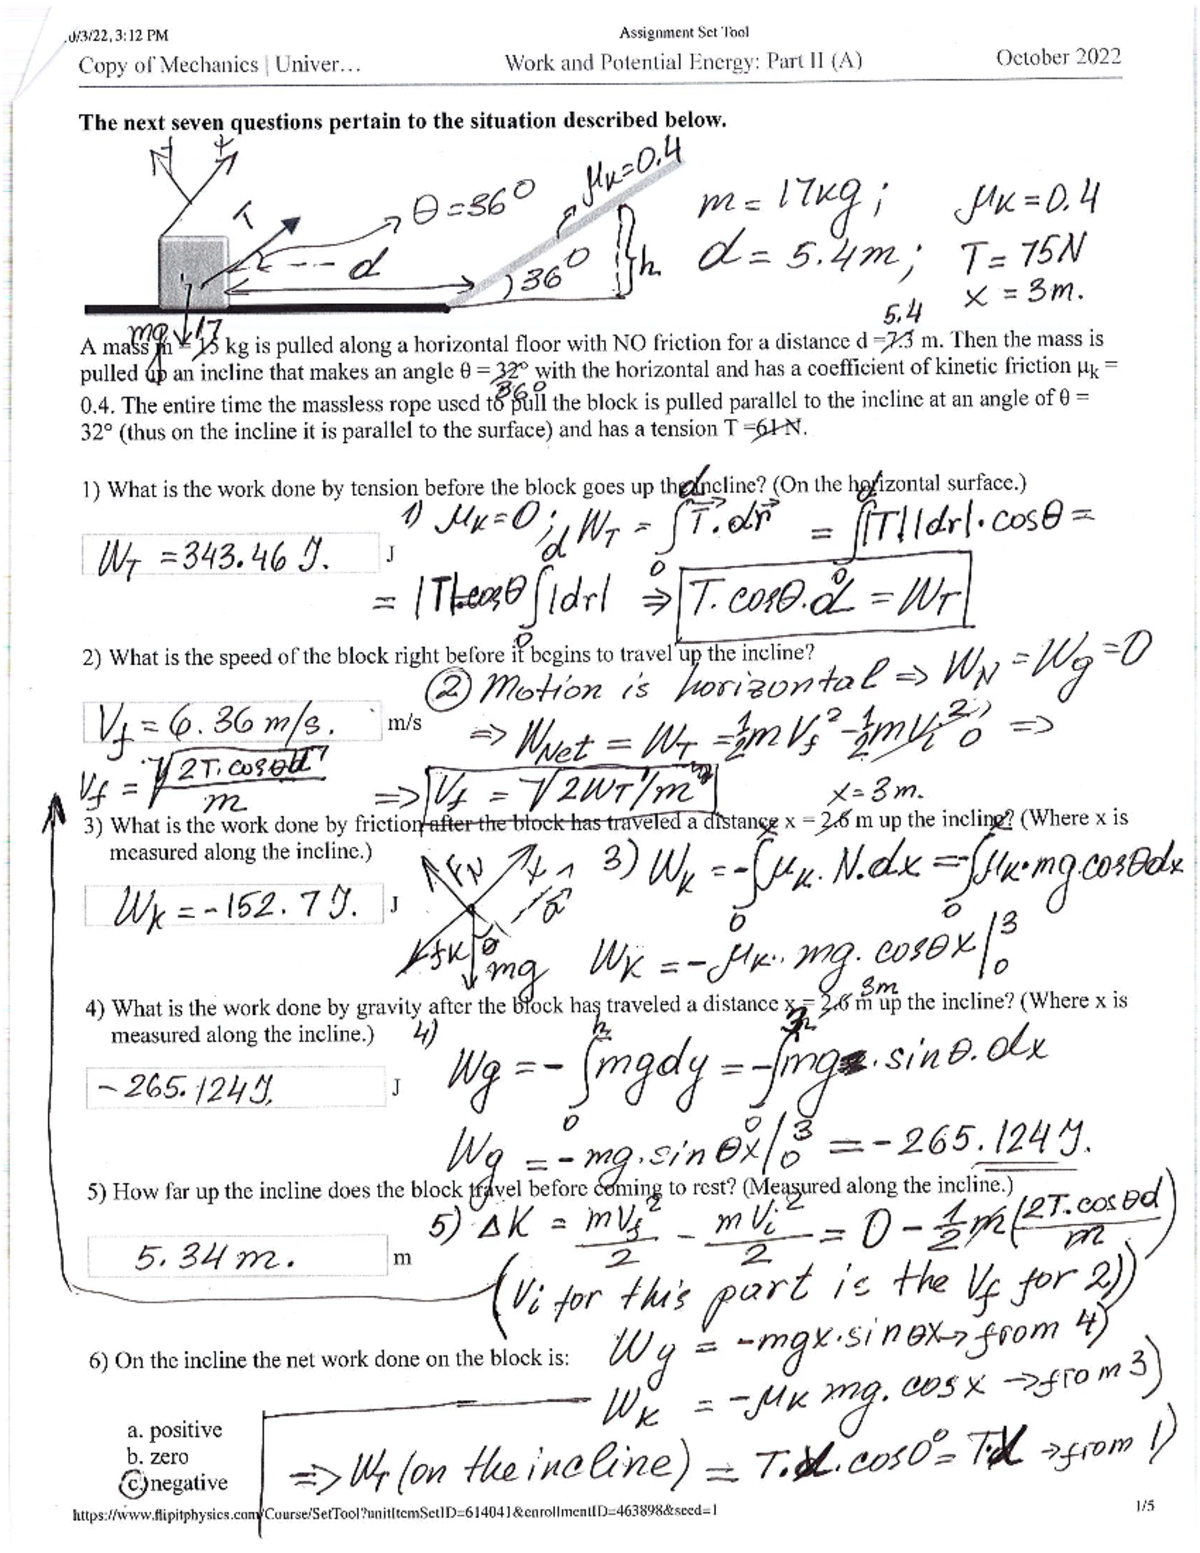 .0/3/22, 3:12 PM
Assignment Set Tool
Copy of Mechanics | Univer…
Work and Potential Energy: Part II (A)
October 2022
The next seven questions pertain to the situation described below.
T
θ = 36°
μK=0.4
d
36°
h
m = 17kg; μK = 0.4
d = 5.4m; T = 75N
x = 3m.
mg 17
5.4
A mass m = 15 kg is pulled along a horizontal floor with NO friction for a distance d =7.3 m. Then the mass is
pulled up an incline that makes an angle θ = 32° with the horizontal and has a coefficient of kinetic friction μk =
36°
0.4. The entire time the massless rope used to pull the block is pulled parallel to the incline at an angle of θ =
32° (thus on the incline it is parallel to the surface) and has a tension T =61 N.
1) What is the work done by tension before the block goes up the incline? (On the horizontal surface.)
1) μK=0; WT = ∫0d T⃗.dr⃗ = ∫0d |T||dr|.cosθ =
WT = 343.46 J. J
= |T|.cosθ ∫0d |dr| ⇒ T.cosθ.d = WT
2) What is the speed of the block right before it begins to travel up the incline?
② Motion is horizontal ⇒ WN = Wg = 0
Vf = 6.36 m/s. m/s
⇒ WNet = WT = ½mVf² - ½mVi² 0 ⇒
Vf = √2T.cosθd/m
⇒ Vf = √2WT/m
x = 3m.
3) What is the work done by friction after the block has traveled a distance x = 2.6 m up the incline? (Where x is
measured along the incline.)
FN x a
3) WK = -∫0 μK.N.dx = -∫0 μK.mg.cosθdx
WK = -152.7 J. J
fK θ mg
WK = -μK.mg.cosθx|03
3m
4) What is the work done by gravity after the block has traveled a distance x = 2.6 m up the incline? (Where x is
measured along the incline.)
4) Wg = -∫0h mgdy = -∫0 mg.sinθ.dx
-265.124 J. J
Wg = -mg.sinθx|03 = -265.124 J.
5) How far up the incline does the block travel before coming to rest? (Measured along the incline.)
5) ΔK = mVf²/2 - mVi²/2 = 0 - ½m(2T.cosθd/m)
5.34 m. m
(Vi for this part is the Vf for 2))
Wg = -mgx.sinθx → from 4)
6) On the incline the net work done on the block is:
WK = -μK mg.cosx → from 3)
a. positive
b. zero
c. negative
⇒ WT (on the incline) = T.x.cos0° = T.x → from 1)
https://www.flipitphysics.com/Course/SetTool?unitItemSetID=614041&enrollmentID=463898&seed=1
1/5